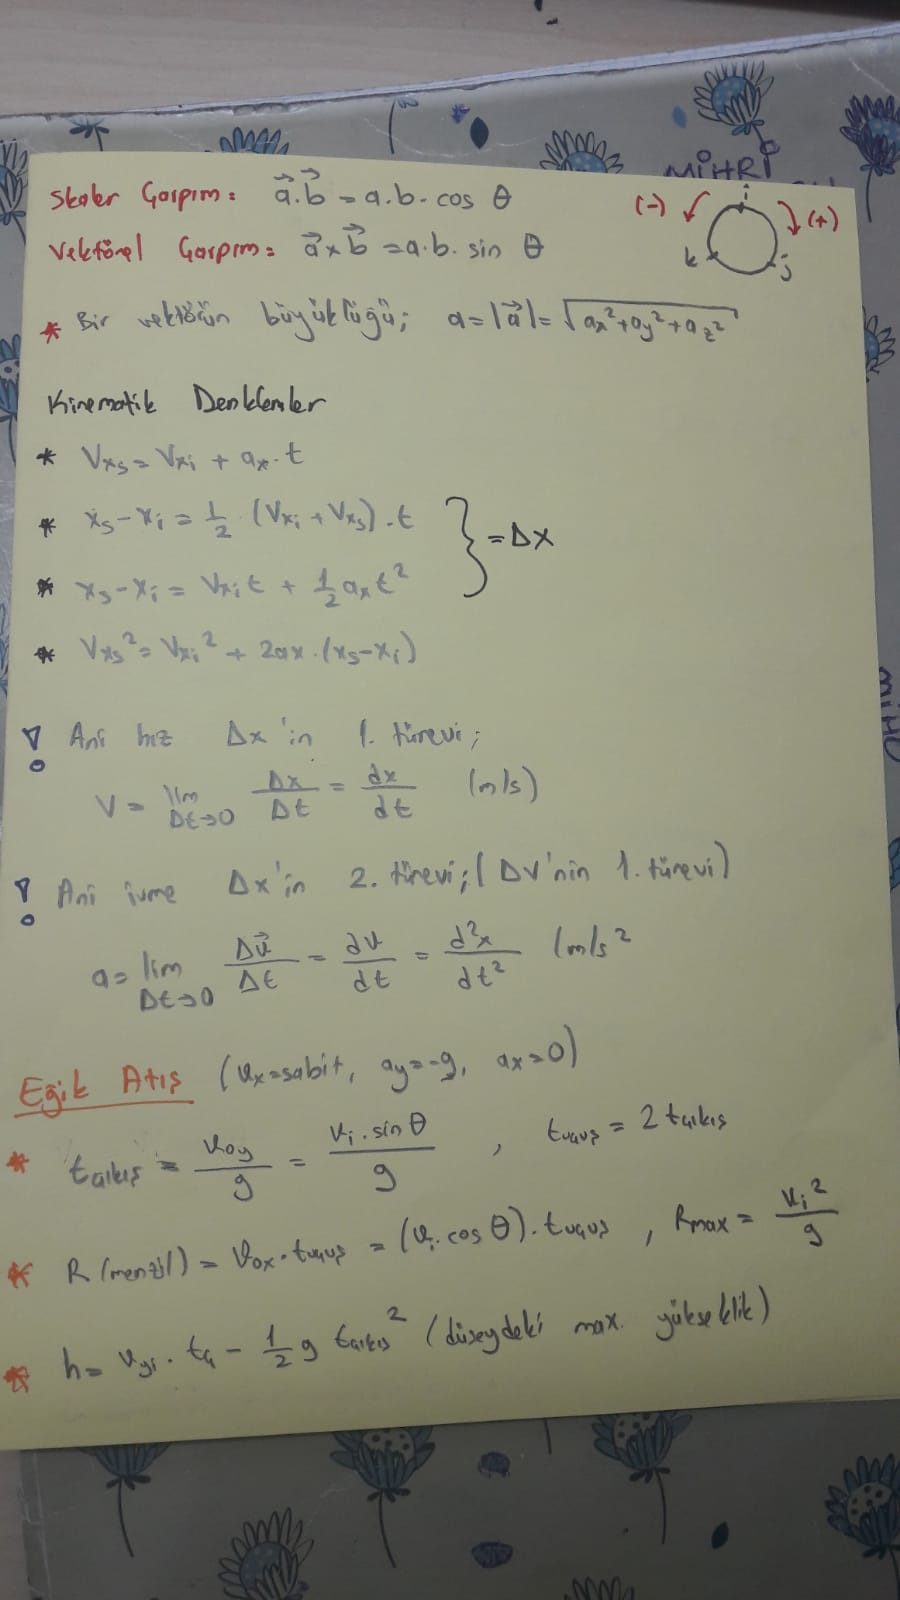 MiHRi
Skaler Çarpım: a⃗.b⃗ = a.b. cos θ
(-) i (+)
k j
Vektörel Çarpım: a⃗xb⃗ = a.b. sin θ
* Bir vektörün büyüklüğü; a=|a⃗|=√(ax²+ay²+az²)
Kinematik Denklemler
* Vxs = Vxi + ax.t
* xs-xi = 1/2 (Vxi + Vxs).t
} = Δx
* xs-xi = Vxit + 1/2 axt²
* Vxs² = Vxi² + 2ax.(xs-xi)
! Ani hız Δx'in 1. türevi;
V = lim Δt→0 Δx/Δt = dx/dt (m/s)
! Ani ivme Δx'in 2. türevi; (Δv'nin 1. türevi)
a = lim Δt→0 Δv⃗/Δt = dv/dt = d²x/dt² (m/s²
Eğik Atış (Vx=sabit, ay=-g, ax=0)
* tçıkış = Voy/g = Vi.sinθ/g , tuçuş = 2 tçıkış
* R (menzil) = Vox.tuçuş = (Vi.cosθ).tuçuş , Rmax = Vi²/g
* h = Vyi.tç - 1/2 g tçıkış² (düşeydeki max. yükseklik)